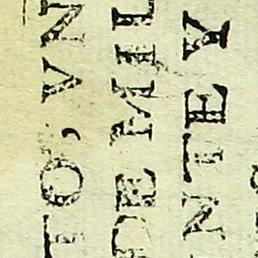 TO, VN
DE MIL
NTE Y